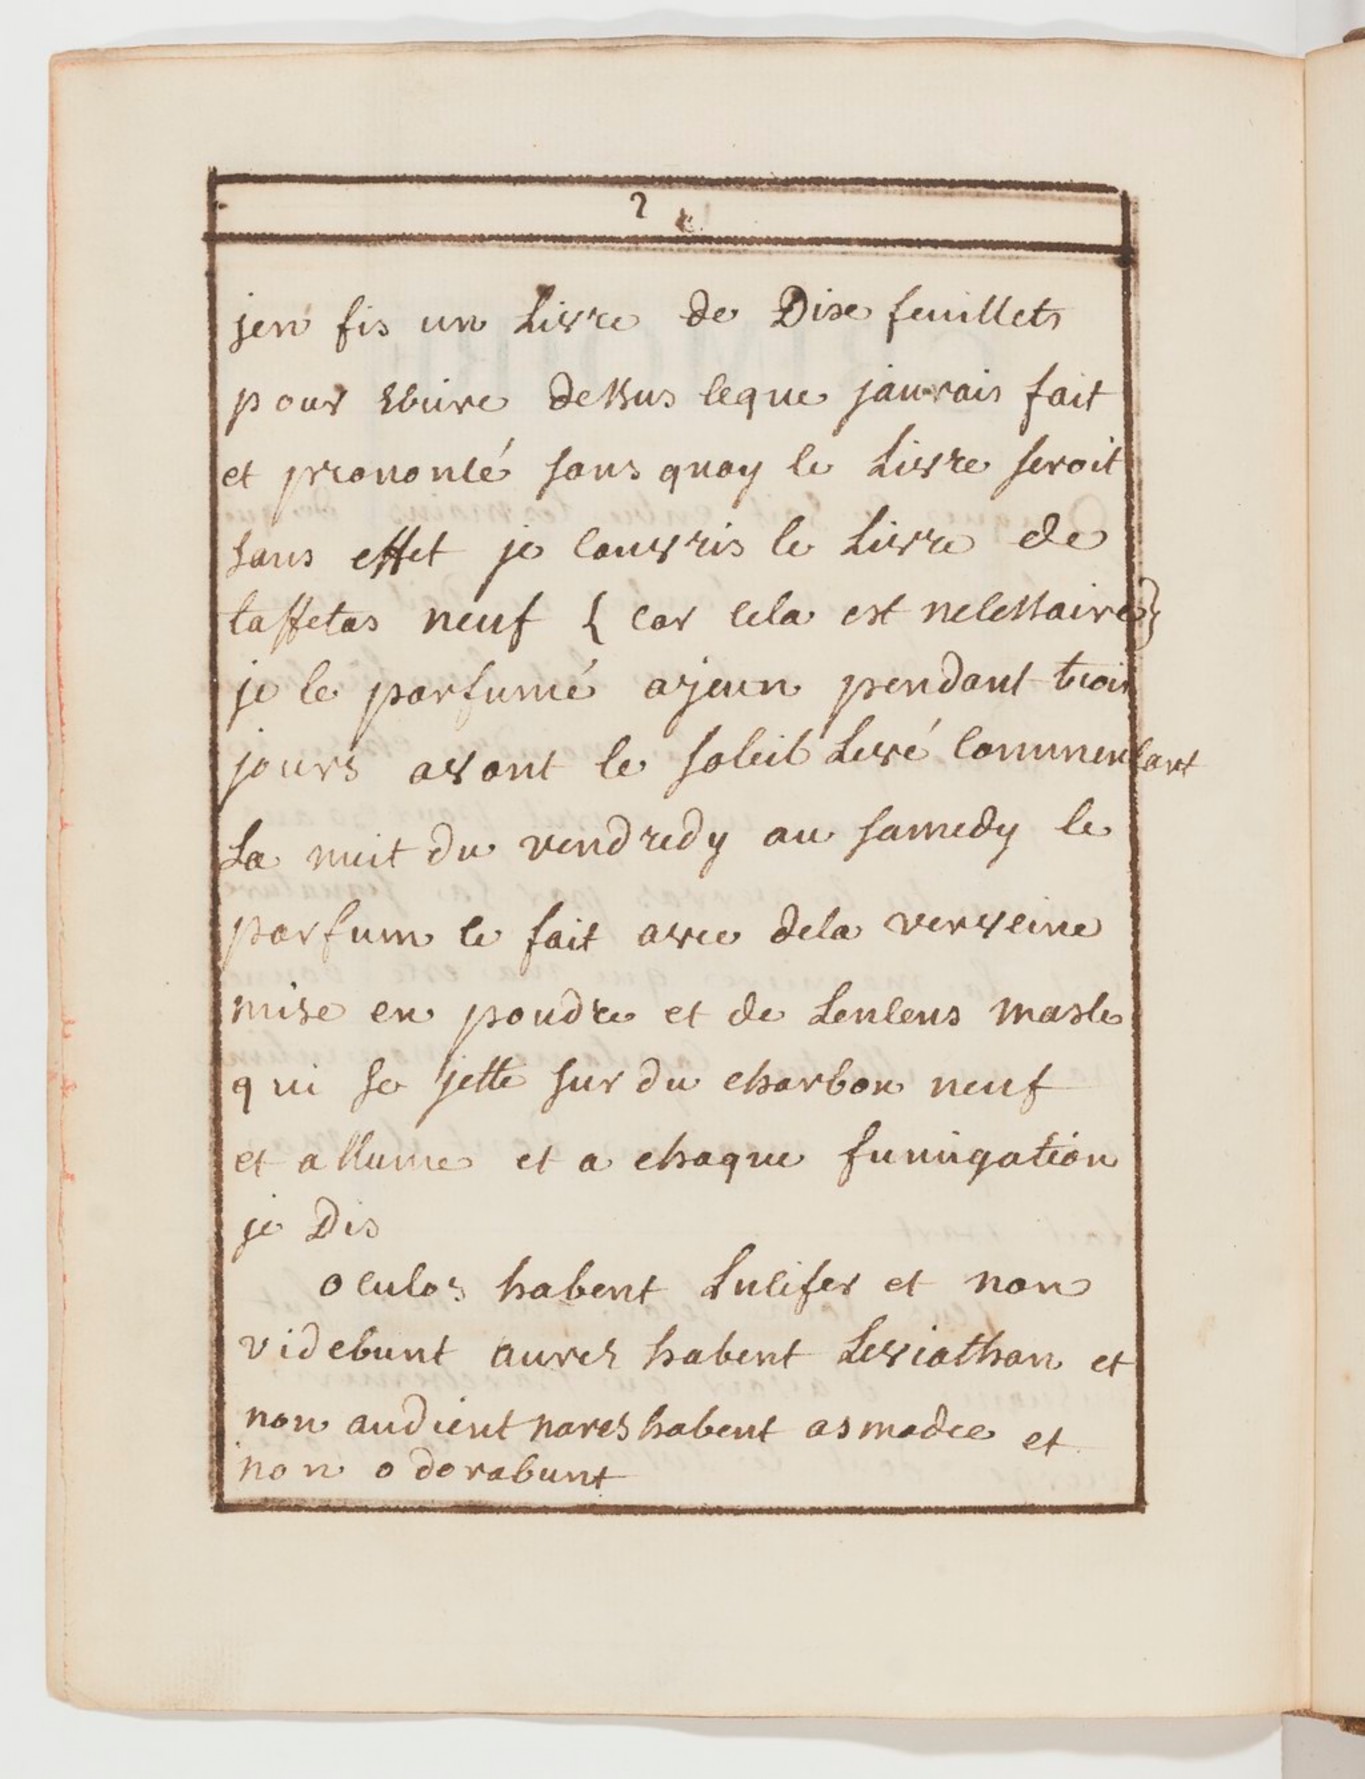 2
jen fis un Livre de Dixe feuillets
pour ecrire dessus leque jaurais fait
et prononcé sans quoy le Livre seroit
sans effet je couvris le Livre de
taffetas neuf { car cela est necessaire }
je le parfumé ajeun pendant trois
jours avant le soleil Levé commencant
La nuit du vendredy au samedy le
parfum ce fait avec dela verveine
mise en poudre et de Lencens masle
qui se jette sur du charbon neuf
et allume et a chaque fumigation
je Dis
oculos habent Lucifer et non
videbunt aures habent Leviathan et
non audient nares habent asmodee et
non odorabunt